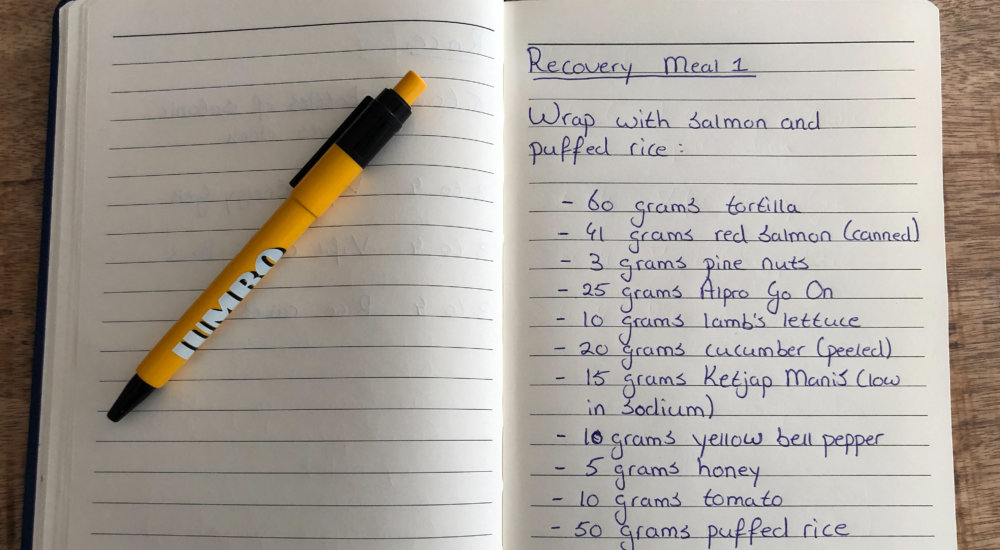 JUMBO
Recovery Meal 1
Wrap with salmon and
puffed rice:
- 60 grams tortilla
- 41 grams red salmon (canned)
- 3 grams pine nuts
- 25 grams Alpro Go On
- 10 grams lamb's lettuce
- 20 grams cucumber (peeled)
- 15 grams Ketjap Manis (low
in sodium)
- 10 grams yellow bell pepper
- 5 grams honey
- 10 grams tomato
- 50 grams puffed rice